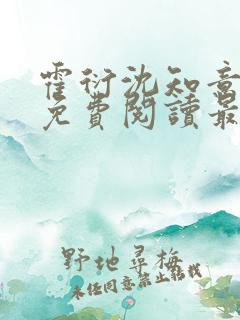 霍衍沈知意
免費閱讀最
野地尋梅
未经同意禁止转载